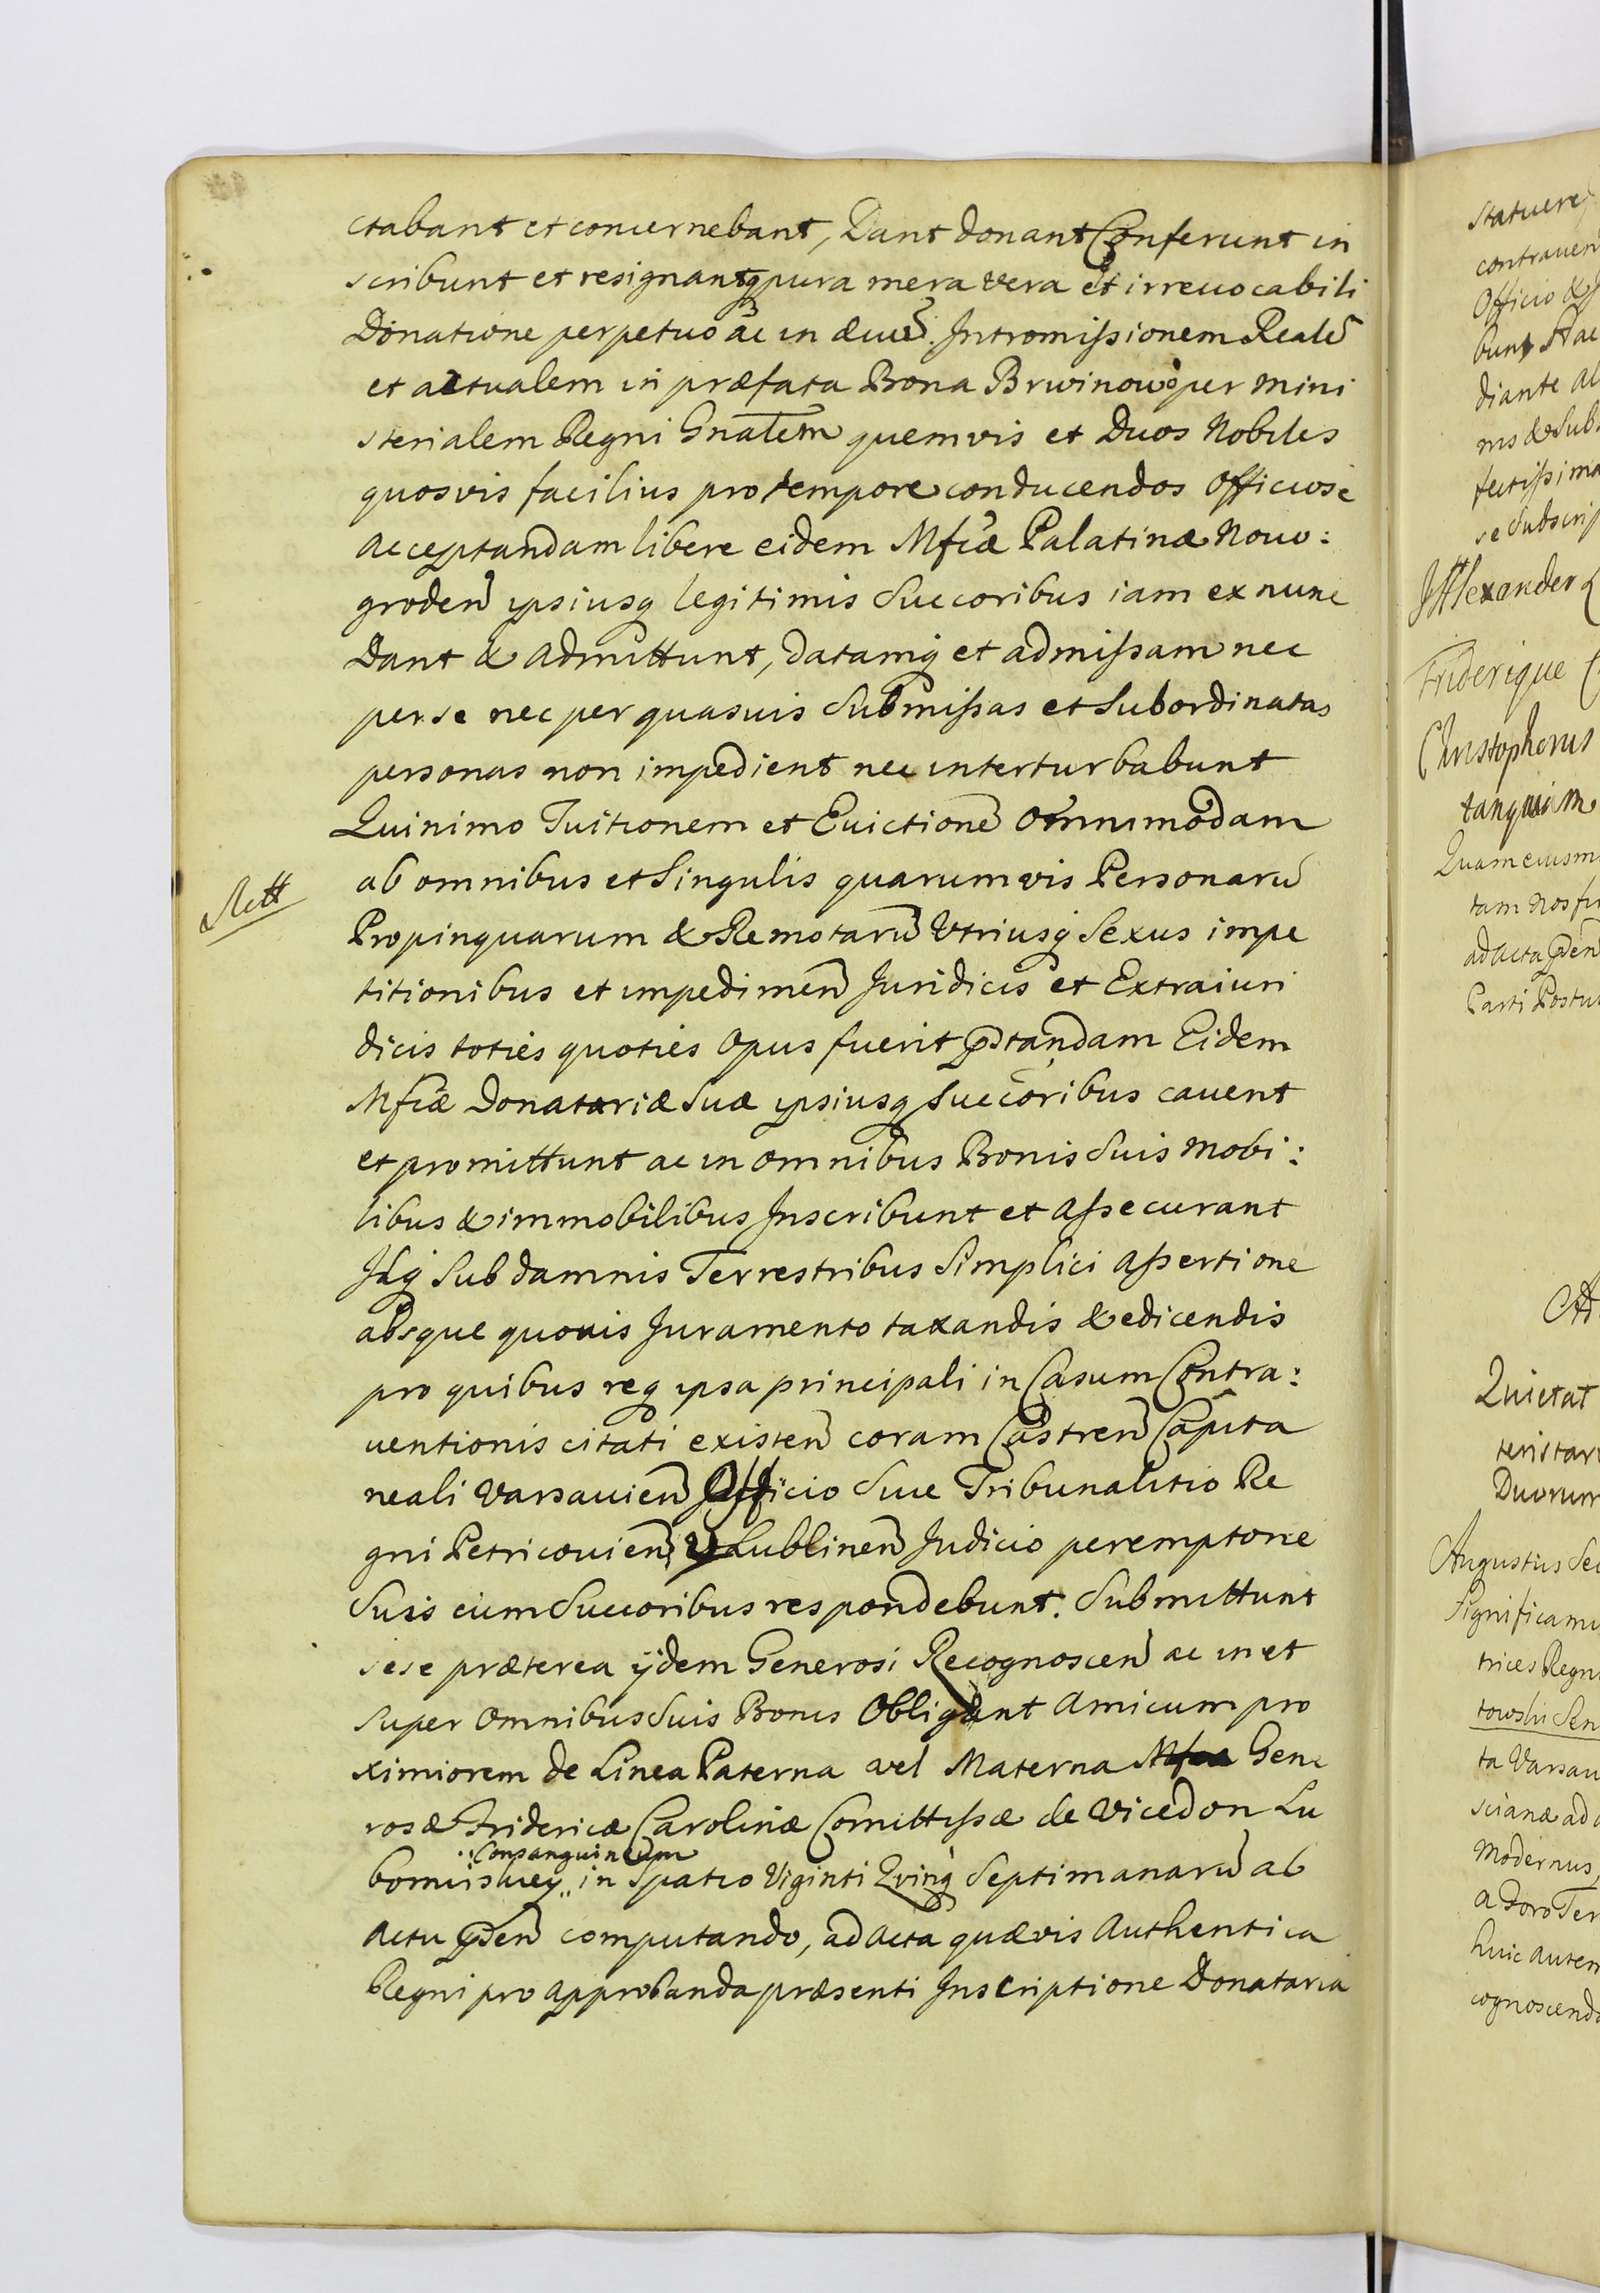 ctabant et concernebant, Dant donant Conferunt in
scribunt et resignant pura mera vera et irreuocabili
Donatione perpetuo ac in æuū. Intromissionem Realē
et actualem in præfata Bona Brwinowo per Mini
sterialem Regni Gnalem quemvis et Duos Nobiles
quosvis facilius pro tempore conducendos Officiose
acceptandam libere eidem Mfcæ Palatinæ Nouo:
groden ipsiusq legitimis Succoribus iam ex nunc
Dant & admittunt, datamq et admissam nec
per se nec per quasuis Submissas et Subordinatas
personas non impedient nec interturbabunt
Quinimo Tuitionem et Euictionē Omnimodam
ab omnibus et Singulis quarumvis Personarū
Propinquarum & Remotarū Vtriusq Sexus impe
titionibus et impedimen Juridicis et Extraiuri
dicis toties quoties Opus fuerit pstandam Eidem
Mfcæ Donatariæ Suæ ipsiusq Succoribus cauent
et promittunt ac in omnibus Bonis Suis Mobi:
libus & immobilibus Inscribunt et assecurant
Idq Sub damnis Terrestribus Simplici assertione
absque quouis Juramento taxandis & edicendis
pro quibus req ipsa principali in Casum Contra:
uentionis citati existen coram Castren Capita
neali Varsauien Officio Siue Tribunalitio Re
gni Petricouien Lublinen Judicio peremptorie
Suis cum Succoribus respondebunt. Submittunt
sese præterea ijdem Generosi Recognoscen ac in et
super Omnibus Suis Bonis Obligant Amicum pro
ximiorem de Linea Paterna vel Materna Gene
rosæ Fridericæ Carolinæ Comittissæ de Vicedon Lu
Consanguineum
bomirskiey in Spatio Viginti Qvinq Septimanarū ab
Actu pden computando, ad Acta quævis Authentica
Regni pro approbanda præsenti Inscriptione Donataria
Statuere
contrauen
Officio &
diante
se Subscrip
Alexander
Friderique
Christophorus
tanquam
Quam eiusm
tam nos
ad acta pden
Parti Postu
Quietat
Duorum
Augustus Sec
Significamu
trices Regn
towski Sen
ta Varsau
Modernus
a Foro Ter
huic autem
cognoscend